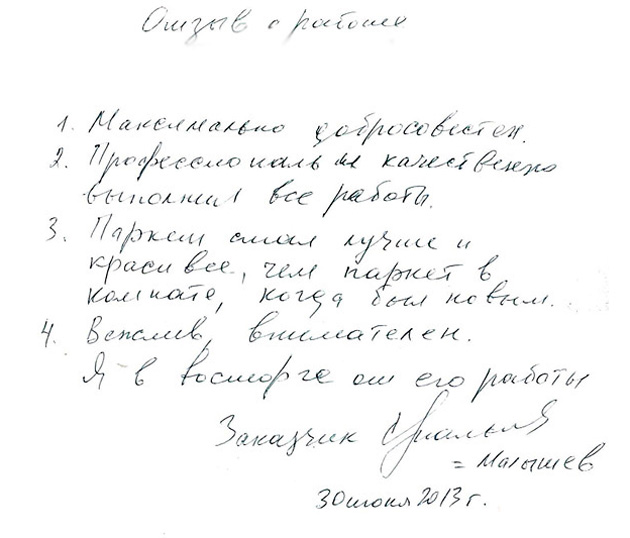 Отзыв о работе
1. Максимально добросовестен.
2. Профессионально и качественно
выполнил все работы.
3. Паркет стал лучше и
красивее, чем паркет в
комнате, когда был новым.
4. Вежлив, внимателен.
Я в восторге от его работы
Заказчик
= Малышев
30 июня 2013 г.